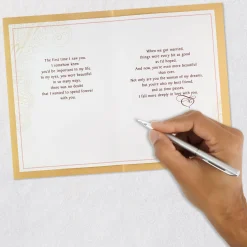 The first time I saw you
I somehow knew
you'd be important to my life.
In my eyes, you were beautiful
in so many ways,
there was no doubt
that I wanted to spend forever
with you.
When we got married,
things were every bit as good
as I'd hoped.
And now, you're even more beautiful
than ever.
Not only are you the woman of my dreams,
but you're also my best friend,
and as time passes,
I fall more deeply in love with you.